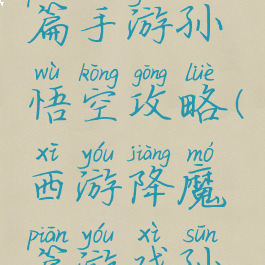 篇手游孙
wù kōng gōng lüè
悟空攻略(
xī yóu jiàng mó
西游降魔
piān yóu xì sūn